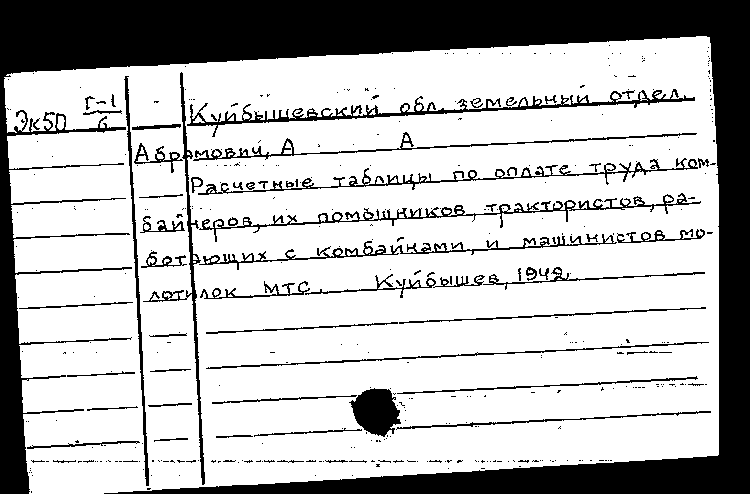 Эк5п Г-1/6
Куйбышевский обл. земельный отдел.
Абрамович, А А
Расчетные таблицы по оплате труда ком-
байнеров, их помощников, трактористов, ра-
ботающих с комбайнами, и машинистов мо-
лотилок МТС. Куйбышев, 1942.